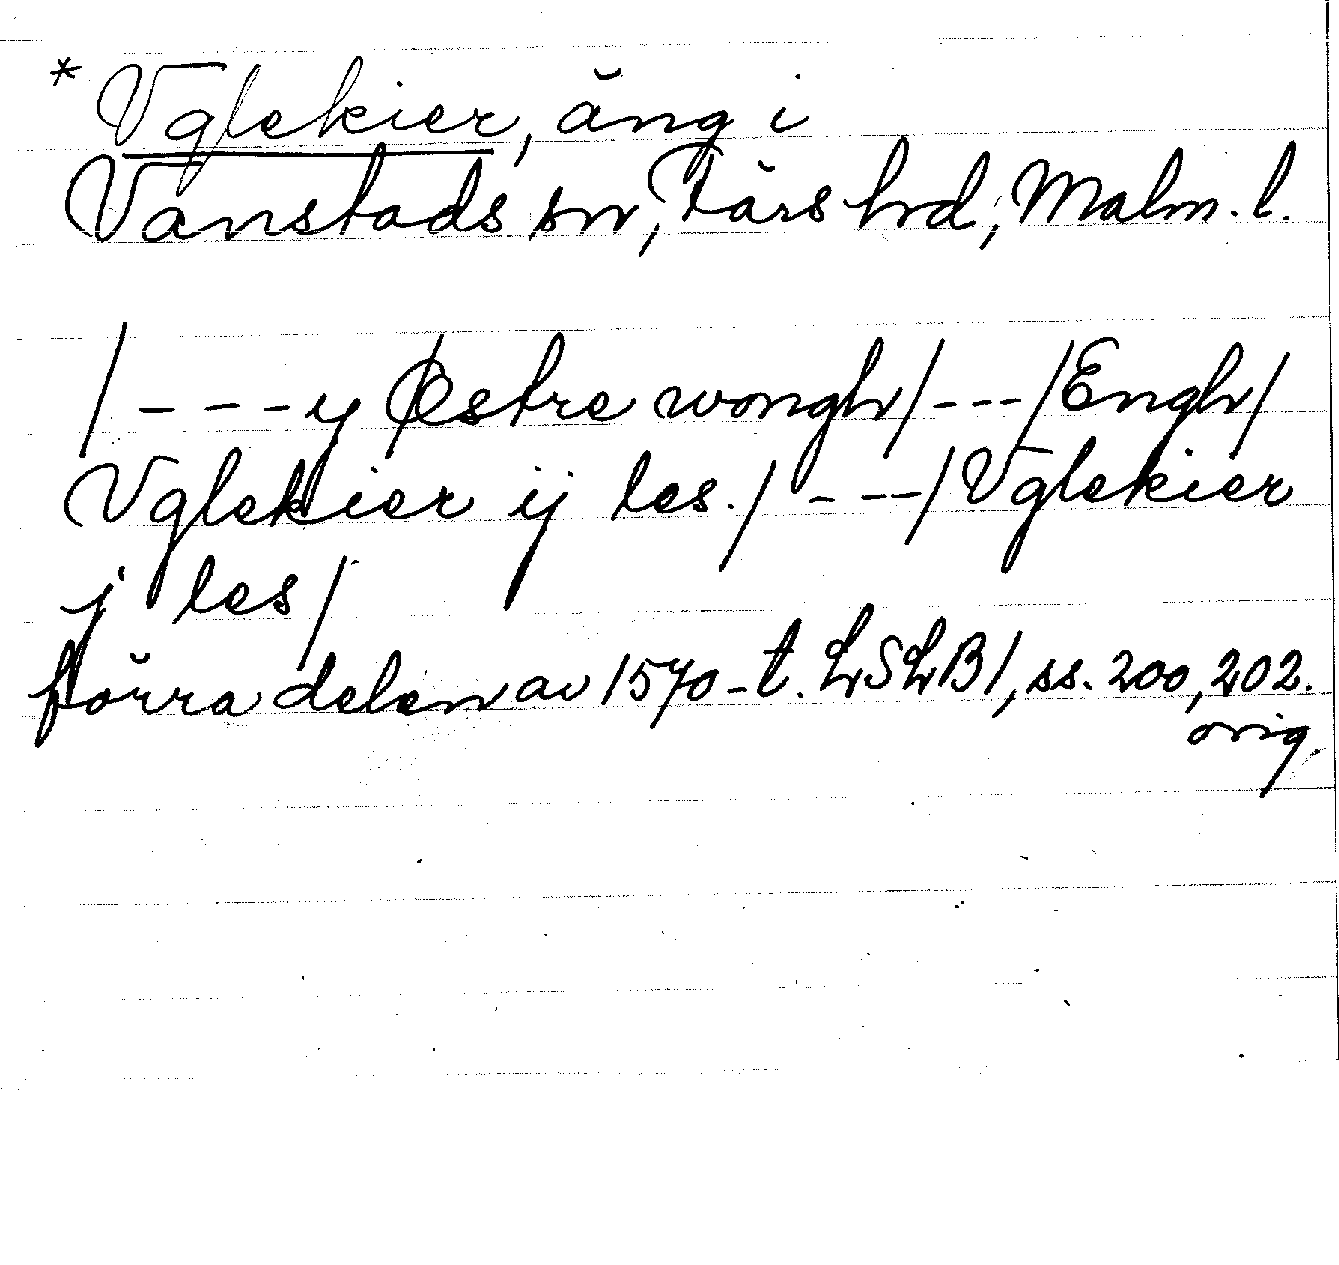 * Vglekier, äng i
Vanstads sn, Färs hrd, Malm. l.
/ - - - y Østre wongh / - - - / Engh /
Vglekier ij les. / - - - / Vglekier
j les /
förra delen av 1570-t. LSLB 1, ss. 200, 202.
orig.